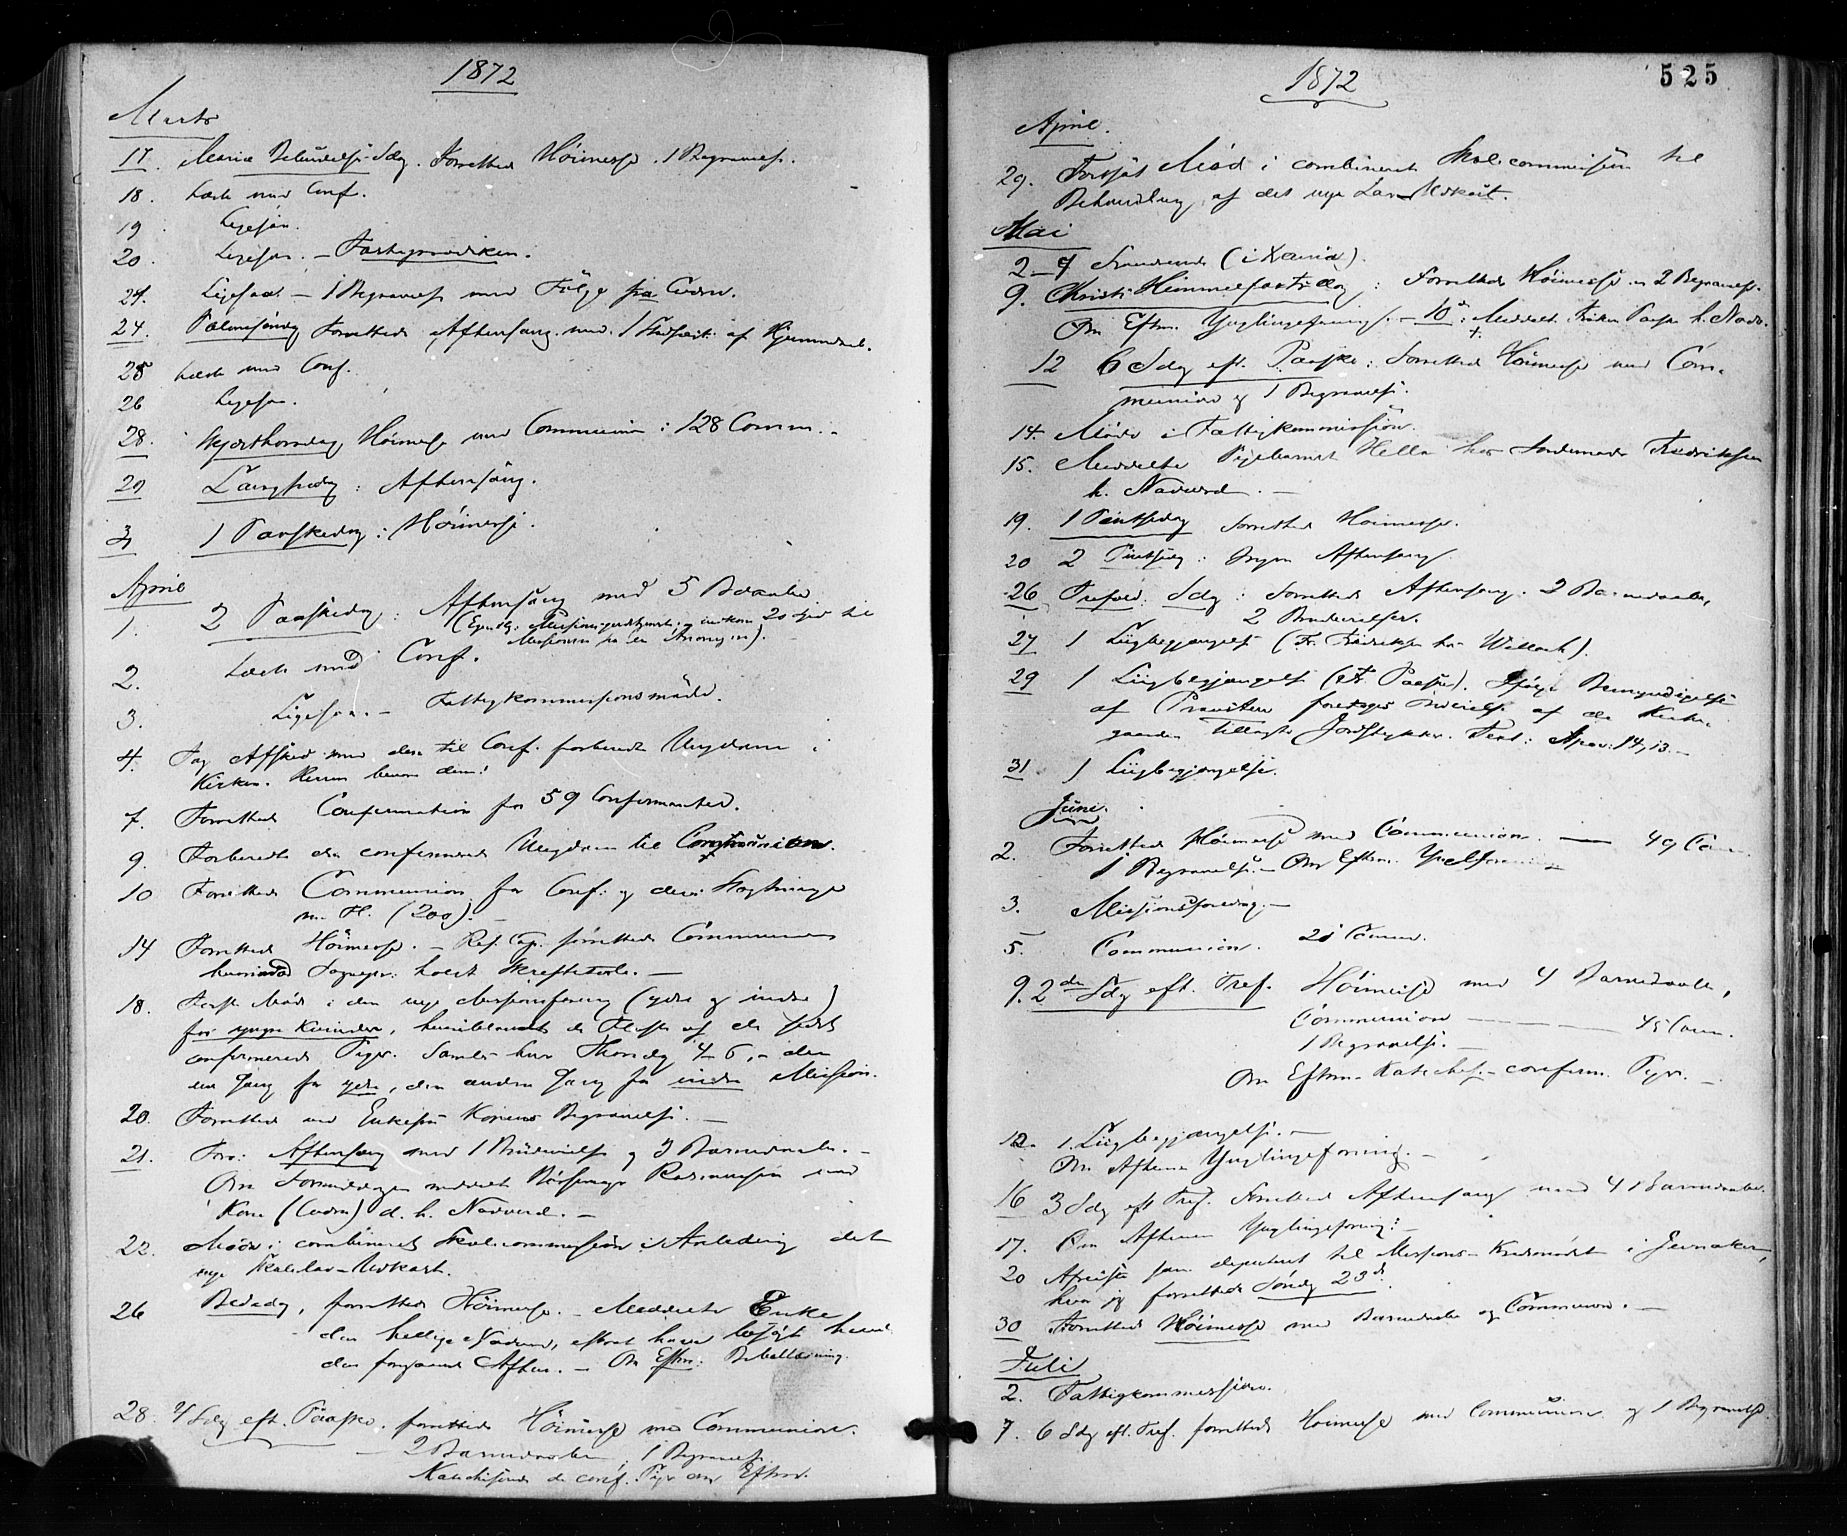 1872
Marts
17. Mariæ Bebudelses Sdg. Forrettede Höimesse. 1 Begravelse.
18. Læste med Conf.
19 Ligesaa.
20. Ligesaa. – Fastegudstjen.
21. Ligesaa – 1 Begravelse med Følge fra
24. Palmesöndag Forrettede Aftensang med 1 af
25 Læste med Conf.
26 Ligesaa.
28. Skjærthorsdag, Höimesse med Communion: 128 Comm.
29 Langfredag: Aftensang.
31 1 Paaskedag: Höimesse.
April
1. 2 Paaskedag: Aftensang med 5 Barnedaab
til
Missionen fra en Anonym).
2. Læste med Conf.
3. Ligesaa. – Fattigkommissionsmöde.
4. Tog Afsked med den til Conf. forberedte Ungdom i
Kirken. Herren bevare dem!
7. Forrettede Confirmation for 59 Confirmanter.
9. Forberedte den confirmerede Ungdom til Communion.
10 Forrettede Communion for Conf. og deres Slægtninge
m. Fl. (200). –
14 Forrettede Höimesse. – Res. Cap. forrettede Communion
hvorimod Sognepr. holdt Skriftetale. –
18. Første Möde i den nye Missionsforening (ydre og indre)
for yngre Kvinder, hvoriblandt de Fleste af de sidst
confirmerede Piger. Samles hver Thorsdag 4–6, – den
ene Gang for ydre, den anden Gang for indre Mission.
20. Forrettede ved Enkefru Korens Begravelse. –
21. Forr: Aftensang med 1 Brudevielse og 3 Barnedaab. –
Om Formiddagen meddelt Rasmussen med
Kone d. h. Nadverd. –
22. Möde i combineret Skolecommission i Anledning det
nye Skolelov-Udkast.
26 Bededag, forrettede Höimesse. – Meddelte Enke
den hellige Nadverd, efterat have besögt hende
den foregaaende Aften. – Om Eftm: Bibellæsning.
28. 4 Sdg eft. Paaske. forrettede Höimesse med Communion.
– 2 Barnedaaben, 1 Begravelse.
Katechiserede de conf. Piger om Eftm.
1872
525
April.
29. Fortsat Möde i combineret Skolecommission til
Behandling af det nye Lov-Udkast.
Mai
2–7 (i Xania).
9. Christi Himmelfartsdag: Forrettede Höimesse og 2 Begravelser.
Om Eftm. Ynglingeforening. – 10de: Meddelt Fröken Paaske h. Nadv.
12 6 Sdg eft. Paaske: Forrettede Höimesse med Com-
munion og 1 Begravelse.
14. Möde i Fattigkommission.
15. Meddelte Pigebarnet Hella hos Fredriksen
h. Nadverd. –
19. 1 Pintsedag forrettede Höimesse.
20 2 Pintsedag: Ingen Aftensang.
26 Trefold. Sdg: forrettede Aftensang. 2 Barnedaab,
2 Brudevielser.
27 1 Liigbegjængelse (Fr. Wallach).
29 1 Liigbegjængelse (Fr. Paaske). Ifølge Bemyndigelse
af Provsten foretoges Indvielse af de Kirke-
gaarden tillagte Jordstykker. Text: Apoc: 14,13. –
31 1 Liigbegjængelse.
Juni.
2. Forrettede Höimesse med Communion. — 49 Com.
1 Begravelse. – Om Eftm. Ynglforening
3. Missionsforedrag. –
5. Communion. 21 Comm.
9. 2den Sdg eft. Tref. Höimesse med 4 Barnedaab,
Communion – – – 45 Com.
1 Begravelse. –
Om Eftm. Katechis. – confirm. Piger. –
12. 1 Liigbegjængelse. –
Om Aftenen Ynglingeforening. –
16 3 Sdg eft Tref. Forrettede Aftensang med 4 Barnedaab.
17. Om Aftenen Ynglingeforening: –
20 Afreiste som deputeret til Missions-Kredsmödet i Jevnaker,
hvor jeg forrettede Söndag 23de.
30 Forrettede Höimesse med Barnedaab og Communion. –
Juli
2. Fattigkommission.
7. 6 Sdg eft. Tref. forrettede Höimesse med Communion og 1 Begravelse.